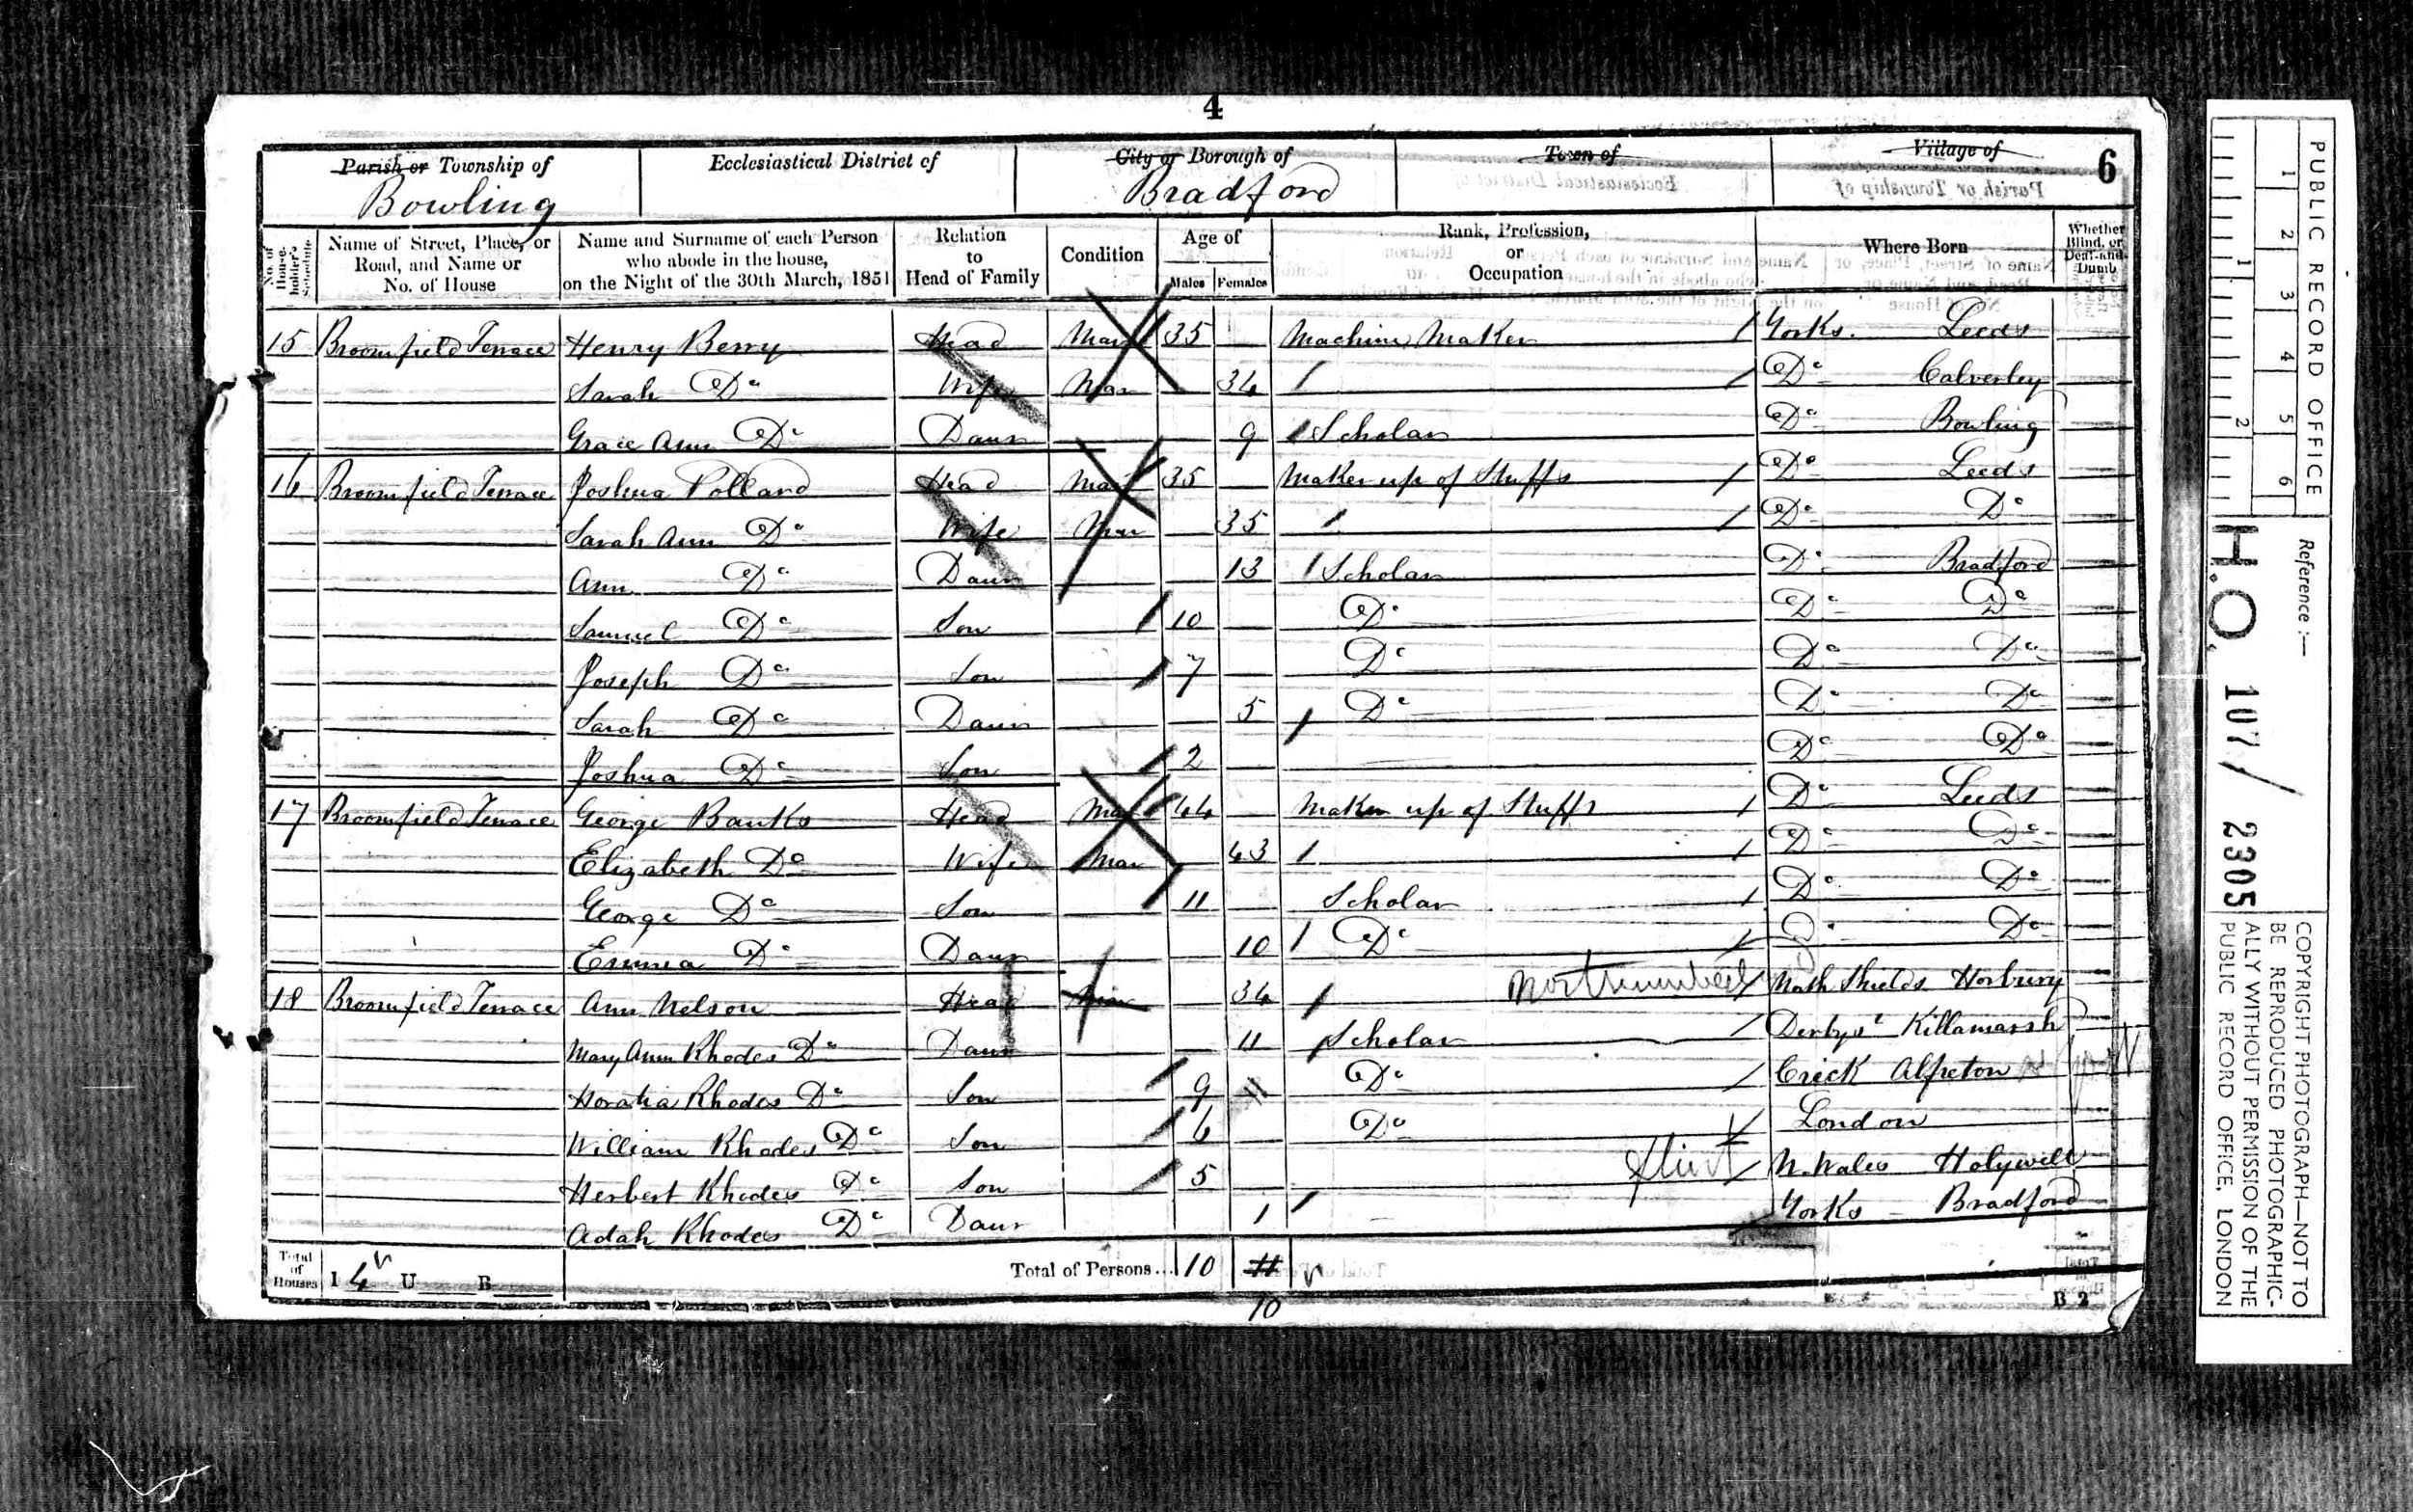 4
Parish or Township of Ecclesiastical District of City or Borough of Town of Village of 6
Bowling Bradford
No. of House-holder's Schedule Name of Street, Place, or Road, and Name or No. of House Name and Surname of each Person who abode in the house, on the Night of the 30th March, 1851 Relation to Head of Family Condition Age of Males Females Rank, Profession, or Occupation Where Born Whether Blind, or Deaf-and-Dumb
15 Broomfield Terrace Henry Berry Head Mar 35 Machine Maker Yorks. Leeds
Sarah Do Wife Mar 34 Do Calverley
Grace Ann Do Daur 9 Scholar Do Bowling
16 Broomfield Terrace Joshua Pollard Head Mar 35 Maker up of Stuffs Do Leeds
Sarah Ann Do Wife Mar 35 Do Do
Ann Do Daur 13 Scholar Do Bradford
Samuel Do Son 10 Do Do Do
Joseph Do Son 7 Do Do Do
Sarah Do Daur 5 Do Do Do
Joshua Do Son 2 Do Do
17 Broomfield Terrace George Banks Head Mar 44 Maker up of Stuffs Do Leeds
Elizabeth Do Wife Mar 43 Do Do
George Do Son 11 Scholar Do Do
Emma Do Daur 10 Do Do Do
18 Broomfield Terrace Ann Nelson Head Mar 34 North Shields Horbury
Mary Ann Rhodes Do Daur 11 Scholar Derbys Killamarsh
Horatia Rhodes Do Son 9 Do Crick Alfreton
William Rhodes Do Son 6 Do London
Herbert Rhodes Do Son 5 Flint N. Wales Holywell
Adah Rhodes Do Daur 1 Yorks Bradford
Total of Houses I 4 U B Total of Persons... 10 11
10
B 2
PUBLIC RECORD OFFICE
1 2 3 4 5 6
1 2
Reference :—
H.O. 107 / 2305
COPYRIGHT PHOTOGRAPH—NOT TO
BE REPRODUCED PHOTOGRAPHIC-
ALLY WITHOUT PERMISSION OF THE
PUBLIC RECORD OFFICE, LONDON